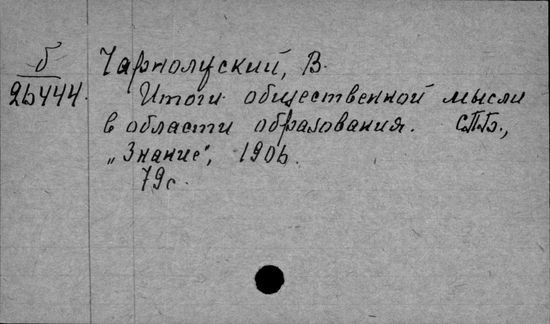 б
26444.
Чарнолуский, В.
Итоги общественной мысли
в области образования. С.П.Б.,
„Знание", 1906.
79с.